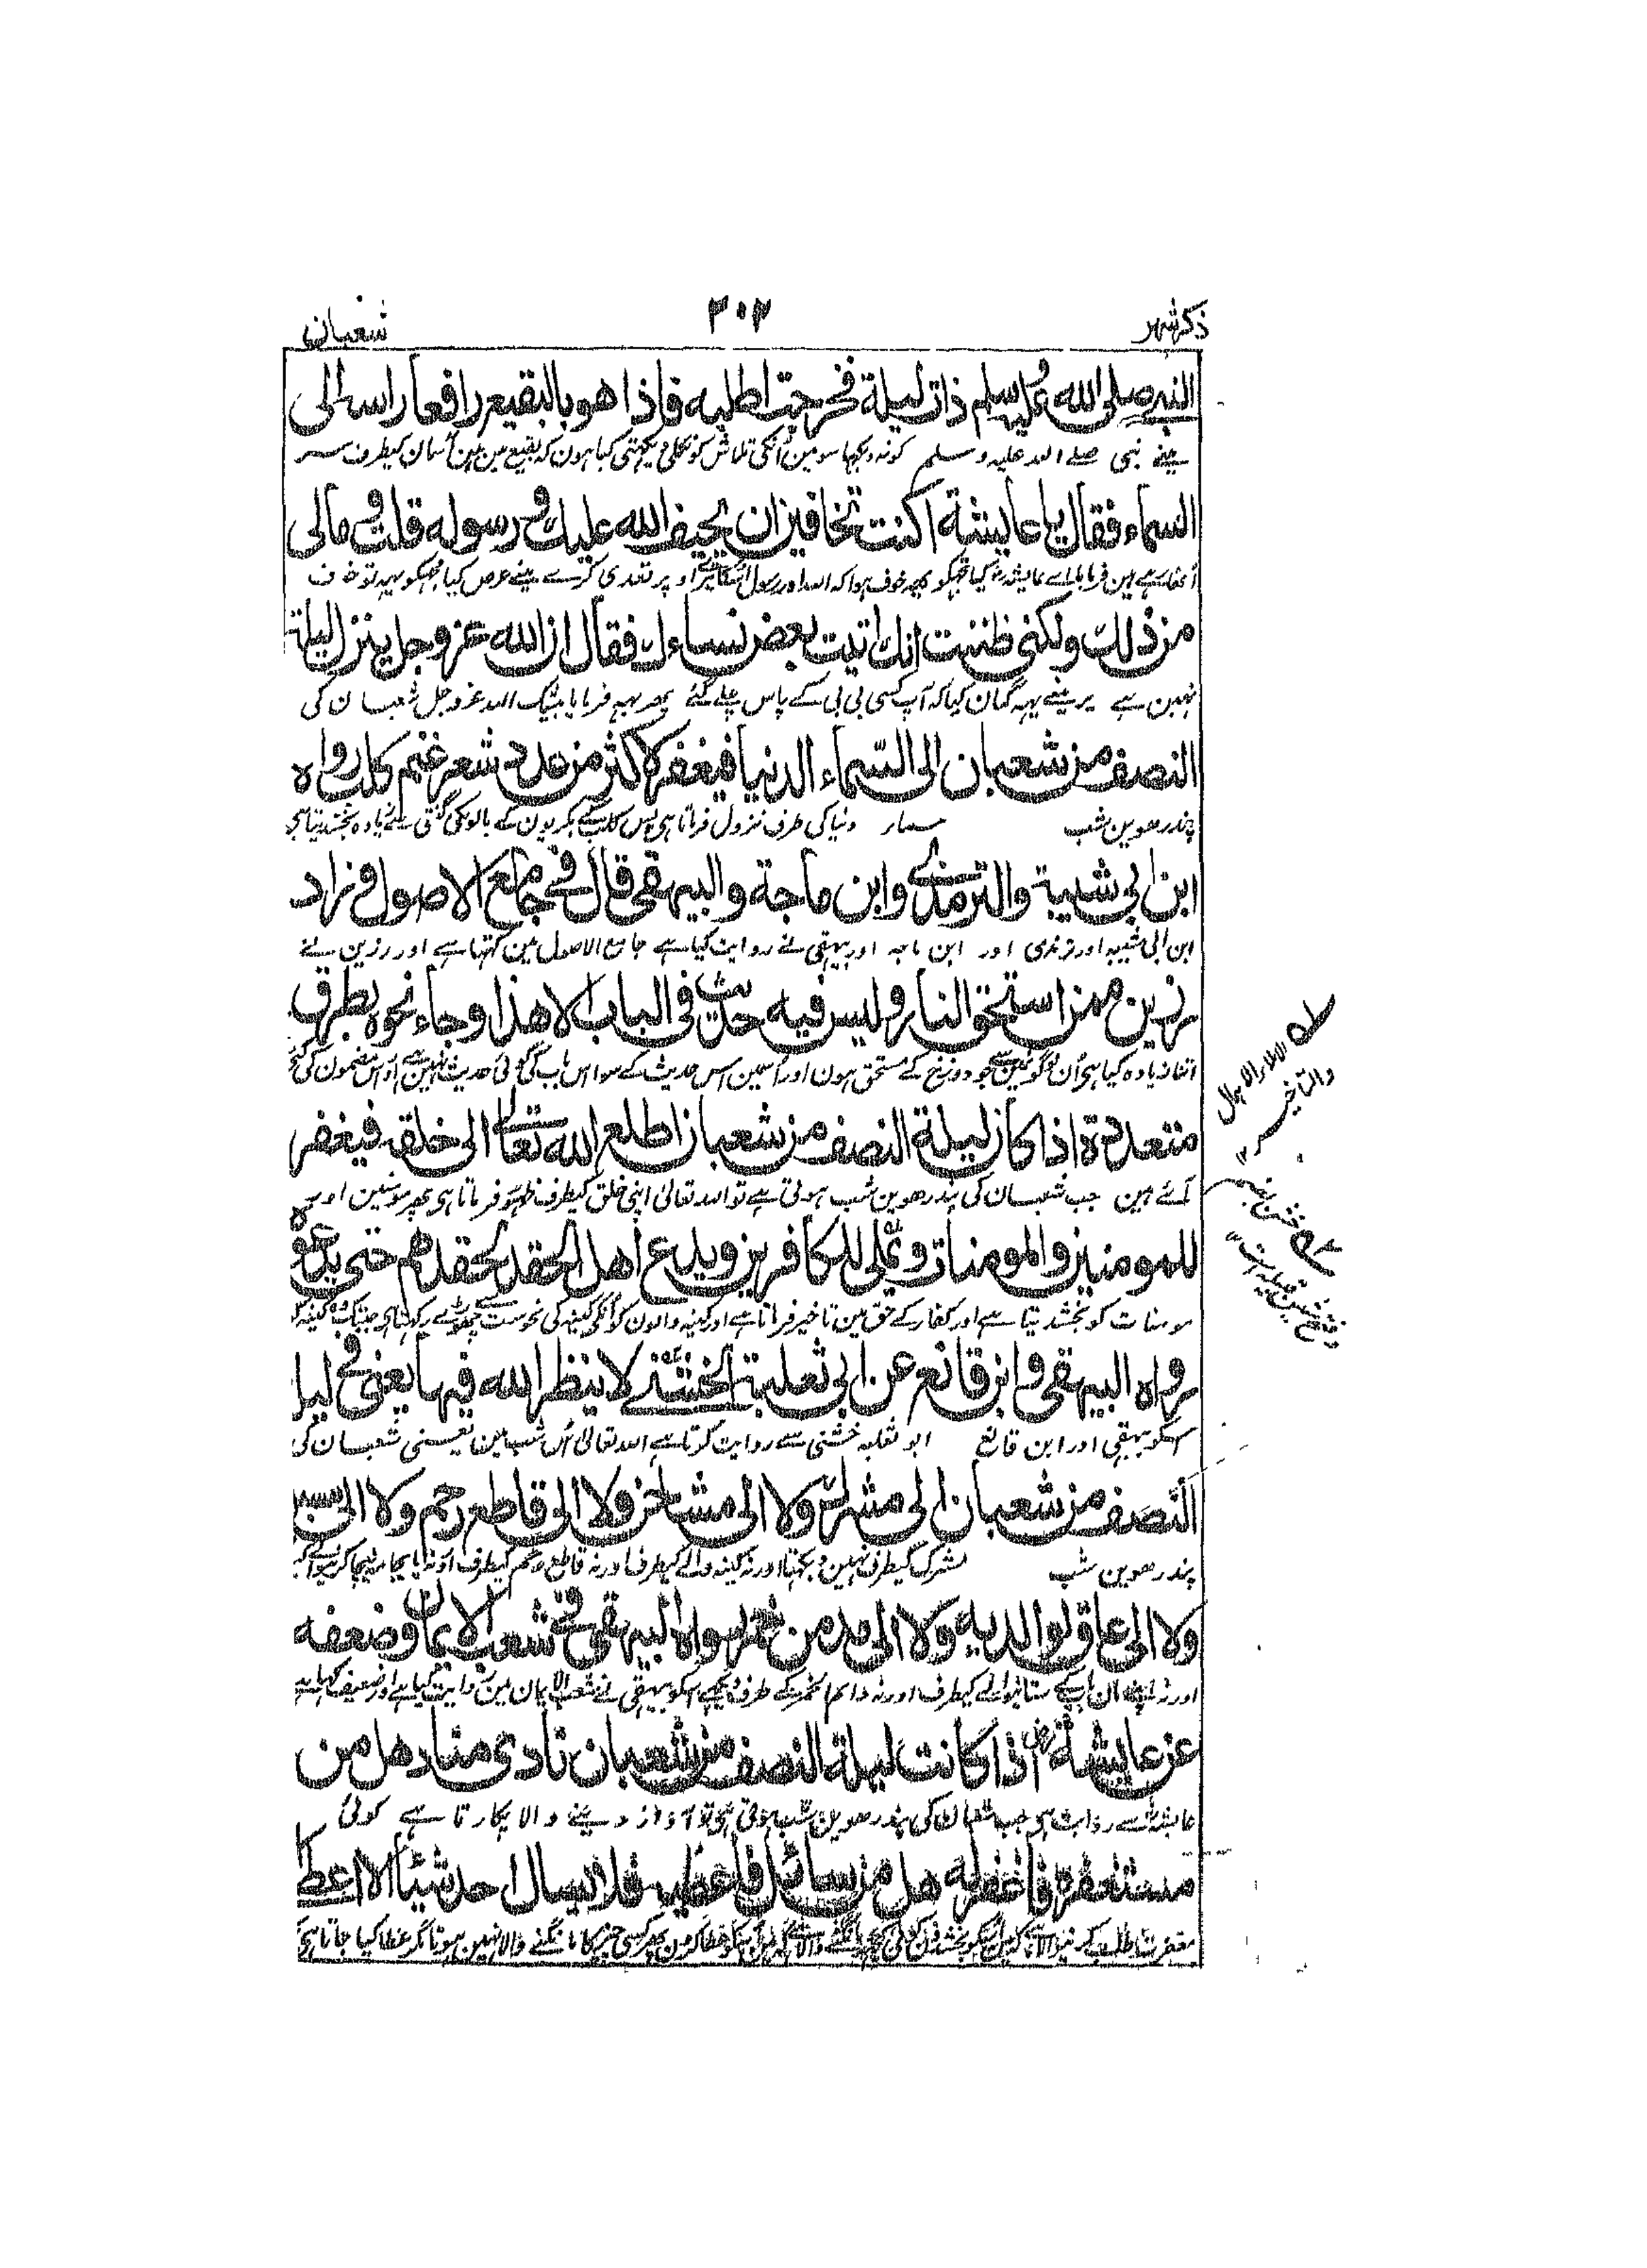 ذکر شہر
۳۰۲
شعبان
النبي صلى الله عليه وسلم ذات ليلة فخرجت اطلبه فاذا هو بالبقيع رافعا راسه الى
مینے نبی صلے اللہ علیہ وسلم کو نہ دیکھا سو مین اُنکی تلاش کو نکلی دیکہتی کیا ہون کہ بقیع مین ہین آسمان کیطرف سر
السماء فقال يا عايشة اكنت تخافين ان يحيف الله عليك ورسوله قلت ومالى
اُٹھا رہے ہین فرمایا اے عایشہ کیا تجہکو یہہ خوف ہوا کہ اللہ اور رسول اسکا تیرے اوپر تعدی کرے مینے عرض کیا مجہکو یہہ تو خوف
من ذلك ولكنى ظننت انك اتيت بعض نساءك فقال ان الله عز وجل ينزل ليلة
نہین ہے پر مینے یہہ گمان کیا کہ آپ کسی بی بی کے پاس چلے گئے پھر یہہ فرمایا بیشک اللہ عز و جل شعبان کی
النصف من شعبان الى السماء الدنيا فيغفر لاكثر من عدد شعر غنم كلب رواه
پندرھوین شب سماء دنیا کی طرف نزول فرماتا ہی پس کلب کے بکریون کے بالونکی گنتی سے زیادہ بخشدیتا ہی
ابن ابي شيبة والترمذى وابن ماجة والبيهقى قال فى جامع الاصول وزاد
ابن ابی شیبہ اور ترمذی اور ابن ماجہ اور بیہقی نے روایت کیا ہے جامع الاصول مین کہتا ہے اور رزین نے
رزين ممن استحق النار وليس فيه حديث فى الباب الا هذا وجاء نحوه بطرق
اتنا زیادہ کیا ہی اُن لوگونمین سے جو دوزخ کے مستحق ہون اور اسمین اس حدیث کے سوا اس باب کی کوئی حدیث نہین ہے اور اس مضمون کی کئی
متعددة اذا كان ليلة النصف من شعبان اطلع الله تعالى الى خلقه فيغفر
آئے ہین جب شعبان کی پندرھوین شب ہوتی ہے تو اللہ تعالیٰ اپنی خلق کیطرف ظہور فرماتا ہی پھر مومنین اور
للمومنين والمومنات ويملى للكافرين ويدع اهل الحقد لحقدهم حتى يدعوه
مومنات کو بخشدیتا ہے اور کفار کے حق مین تاخیر فرماتا ہے اور کینہ والون کو اُنکی کینہ کی نحوست سے چھوڑے رکہتا ہی جبتک وہ کینہ
رواه البيهقى وابن قانع عن ابى ثعلبة الخشنى لا ينظر الله فيها يعنى فى ليلة
اسکو بیہقی اور ابن قانع ابو ثعلبہ خشنی سے روایت کرتا ہے اللہ تعالیٰ اُس شب مین یعنی شعبان کی
النصف من شعبان الى مشرك ولا الى مشاحن ولا الى قاطع رحم ولا الى مسبل
پندرھوین شب مشرک کیطرف نہین دیکہتا اور نہ کینہ والے کیطرف اور نہ قاطع رحم کیطرف اور نہ
ولا الى عاق لوالديه ولا الى مدمن خمر رواه البيهقى فى شعب الايمان وضعفه
اور نہ اپنے ماں باپ کے ستانیوالے کیطرف اور نہ دایم الخمر کے طرف دیکہے اسکو بیہقی نے شعب الایمان مین روایت کیا ہے اور ضعیف کہا ہے
عن عايشة اذا كانت ليلة النصف من شعبان نادى مناد هل من
عایشہ سے روایت ہی جب شعبان کی پندرھوین شب ہوتی ہی تو آواز دینے والا پکارتا ہے کوئی
مستغفر فاغفر له هل من سائل فاعطيه فلا يسال احد شيئا الا اعطى
مغفرت طلب کرنیوالا مانگنے والا نہین ہوتا مگر عطا کیا جاتا ہی
والتاخير ۱۲